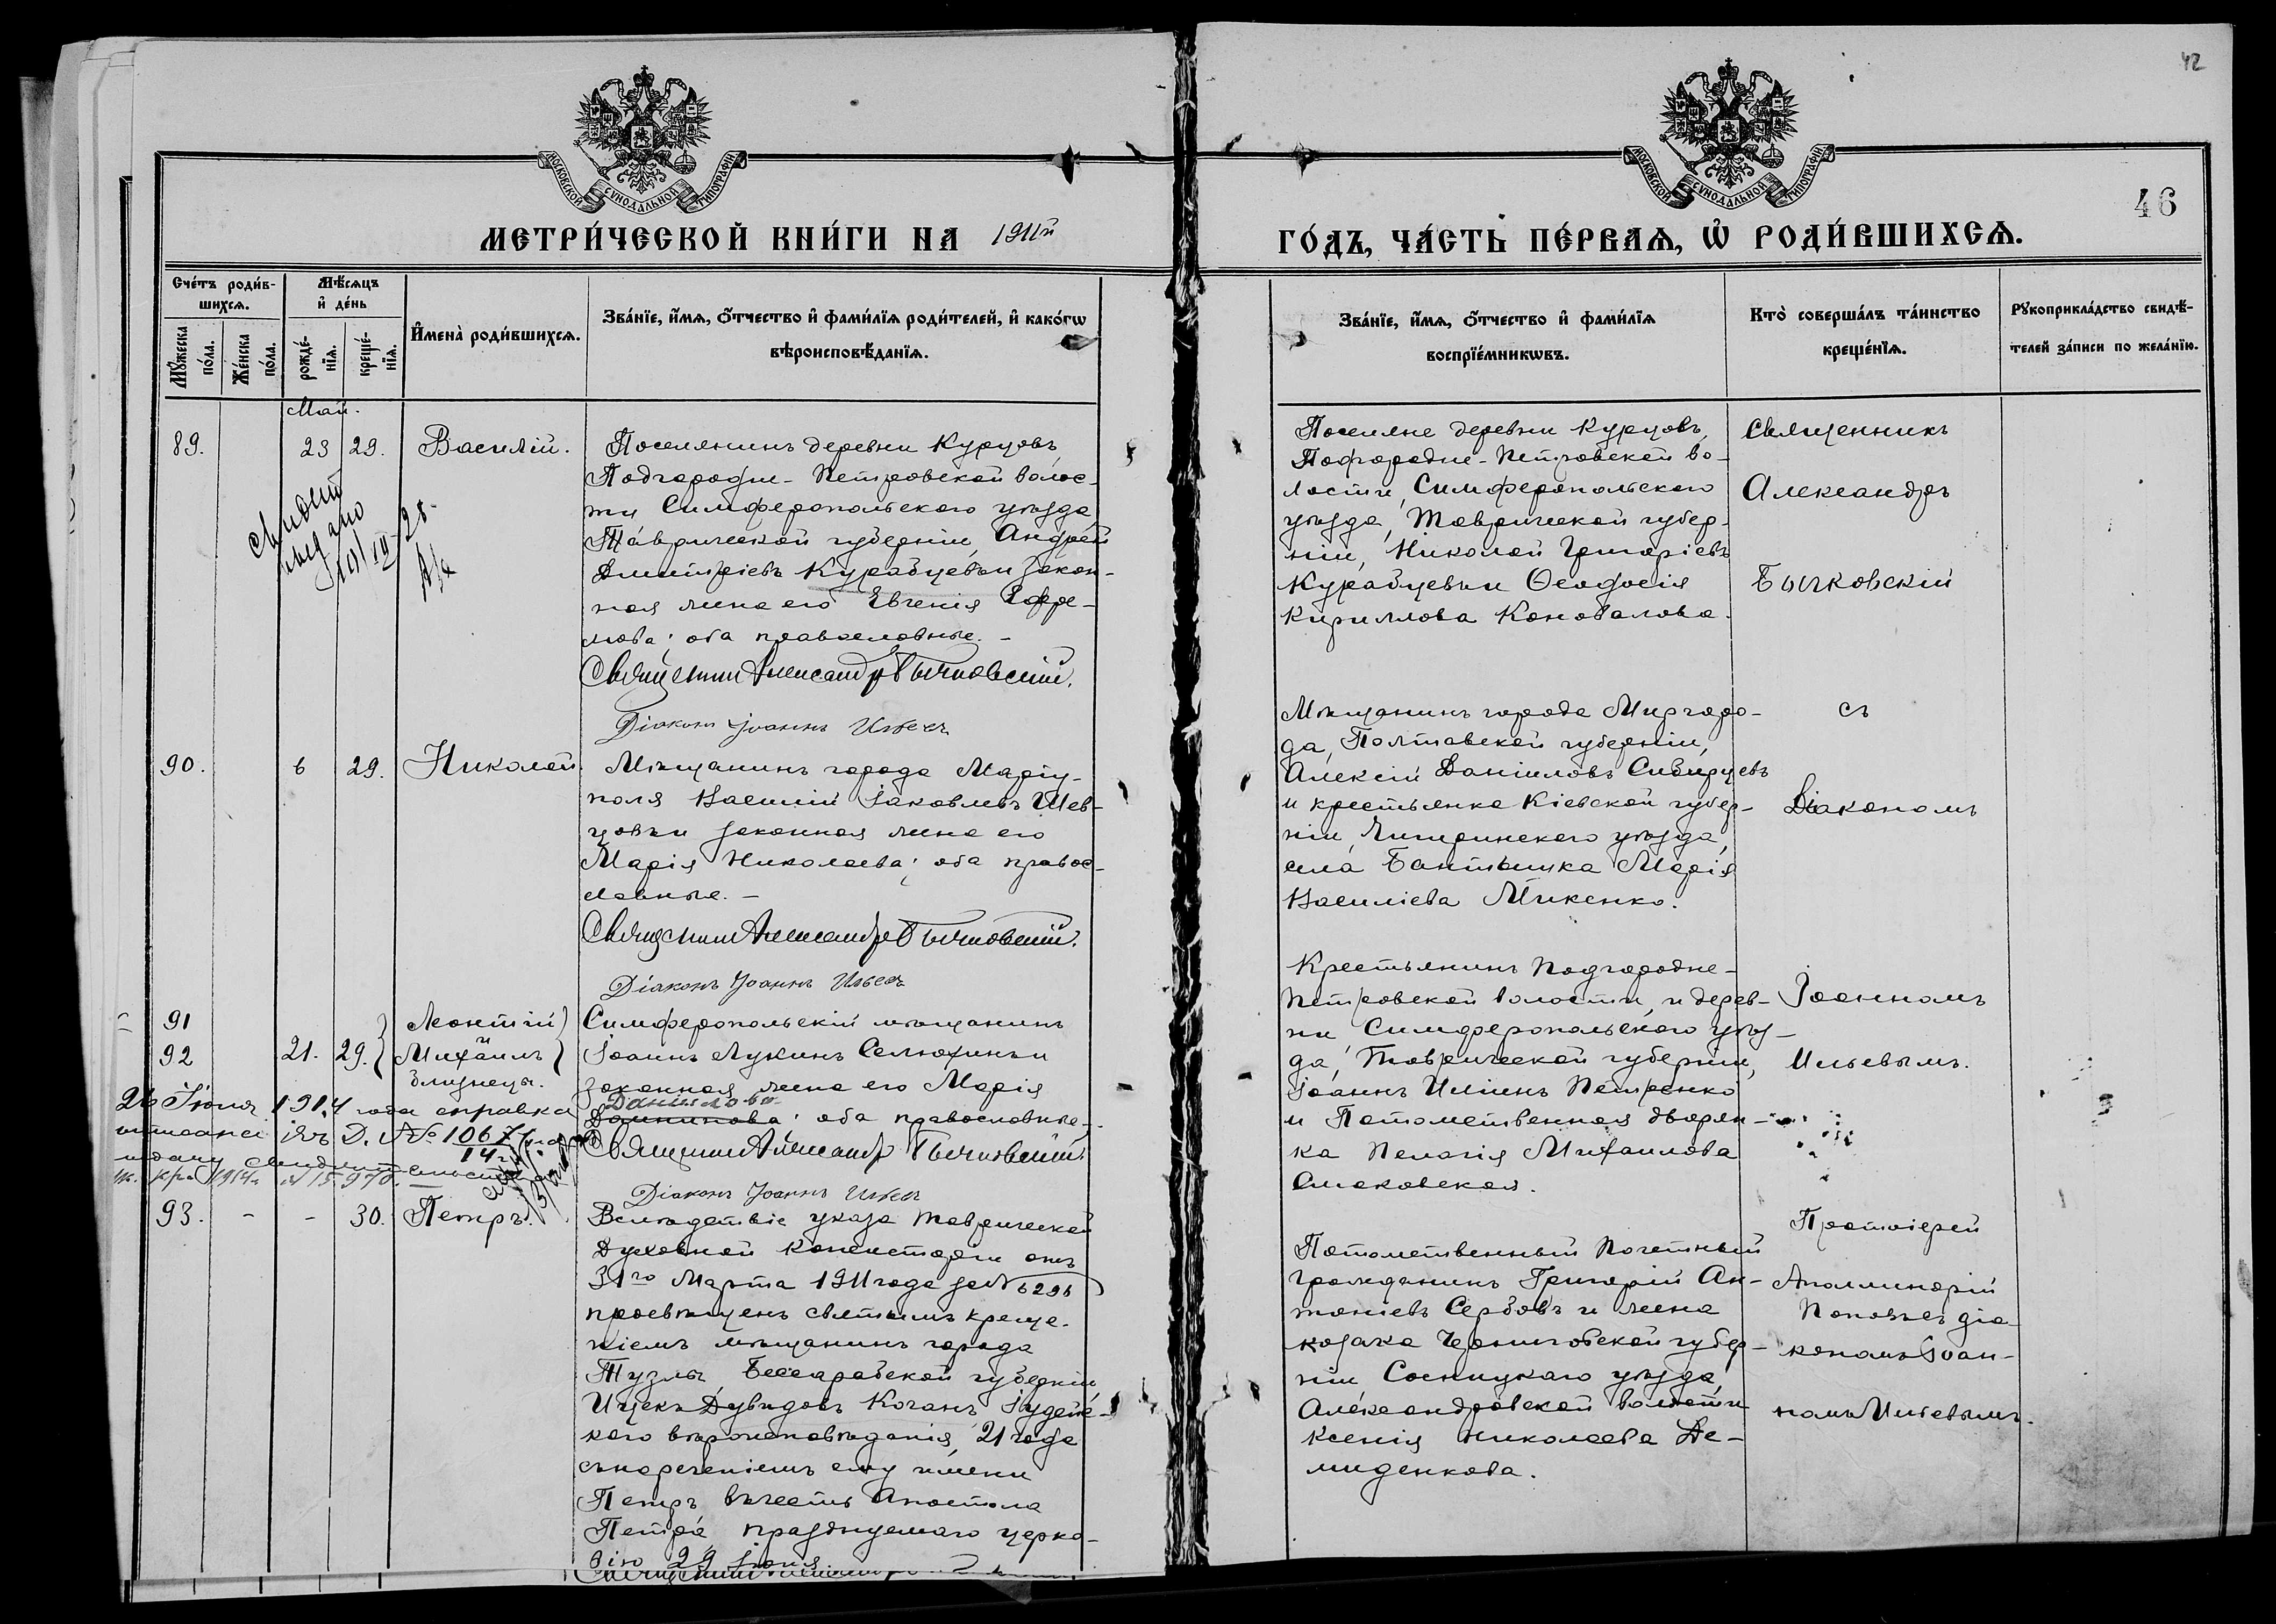 42
46
МОСКОВСКОЙ СѴНОДАЛЬНОЙ ТИПОГРАФІИ
МОСКОВСКОЙ СѴНОДАЛЬНОЙ ТИПОГРАФІИ
МЕТРИ́ЧЕСКОЙ КНИ́ГИ НА 1911й
ГО́ДЪ, ЧА́СТЬ ПЕ́РВАЯ, Ѡ҆ РОДИ́ВШИХСѦ.
Сче́тъ роди́в-
шихсѧ.
Мꙋ́жеска по́ла.
Же́нска по́ла.
Мѣ́сѧцъ и҆ де́нь
рожде́-нїѧ.
креще́-нїѧ.
И҆мена̀ роди́вшихсѧ.
Зва́нїе, и҆́мѧ, ѻ҆́тчество и҆ фами́лїѧ роди́телей, и҆ како́гѡ
вѣроисповѣ́данїѧ.
Зва́нїе, и҆́мѧ, ѻ҆́тчество и҆ фами́лїѧ
воспрїе́мникѡвъ.
Кто̀ соверша́лъ та́инство
креще́нїѧ.
Рꙋкоприкла́дство свидѣ́-
телей за́писи по жела́нїю.
Май.
89. 23 29. Василій.
Поселянинъ деревни Курцовъ,
Подгородне-Петровской волос-
ти Симферопольского уѣзда
Таврической губерніи, Андрей
Дмитріевъ Курабцевъ и закон-
ная жена его Евгенія
оба православные. –
Священникъ Александръ Бычковскій.
Діаконъ Іоаннъ Ильевъ
Поселяне деревни Курцовъ,
Подгородне-Петровской во-
лости, Симферопольского
уѣзда, Таврической губер-
ніи, Николай Григоріевъ
Курабцевъ и Ѳеодосія
Кириллова Коновалова.
Священникъ
Александръ
Бычковскій
90. 6 29. Николай.
Мѣщанинъ города Маріу-
поля Василій Іаковлевъ Шев-
цовъ и законная жена его
Марія Николаева; оба правос-
лавные. –
Священникъ Александръ Бычковскій.
Діаконъ Іоаннъ Ильевъ
Мѣщанинъ города Миргоро-
да, Полтавской губерніи,
Алексій Даніиловъ Сибирцевъ
и крестьянка Кіевской губер-
ніи, Чигиринского уѣзда,
села Марія
Василіева Микенко.
съ
Діакономъ
91
92 21. 29. Леонтій
и
Михаилъ
близнецы.
Симферопольскій мѣщанинъ
Іоаннъ Лукинъ Селюхинъ и
законная жена его Марія
Даніилова
оба православные. –
Священникъ Александръ Бычковскій.
Діаконъ Іоаннъ Ильевъ
26 Іюня 1914 года справка
№ 1067
14
Крестьянинъ Подгородне-
Петровской волости, и дерев-
ни Симферопольского уѣз-
да, Таврической губерніи,
Іоаннъ Иліинъ Петренко
и Потомственная дворян-
ка Пелагія Михаилова
Смоковская.
Іоанномъ
Ильевымъ.
93. - - 30. Петръ.
Вслѣдствіе указа Таврической
Духовной Консисторіи отъ
31го Марта 1911 года за № 6296
просвѣщенъ святымъ креще-
ніемъ мѣщанинъ города
Тузлы Бессарабской губерніи
Ицекъ Дувидовъ Коганъ Іудейс-
кого вѣроисповѣданія, 21 года
съ нареченіемъ ему имени
Петръ въ честь Апостола
Петра празднуемого церко-
вію 29 іюня.
Потомственный почетный
гражданинъ Григорій Ан-
тоніевъ Сербовъ и жена
козака Черниговской губер-
ніи Сосницкаго уѣзда,
Александровской волости
Ксенія Николаева Де-
миденкова.
Протоіерей
Аполлинарій
Поповъ съ діа-
кономъ Іоан-
номъ Ильевымъ.